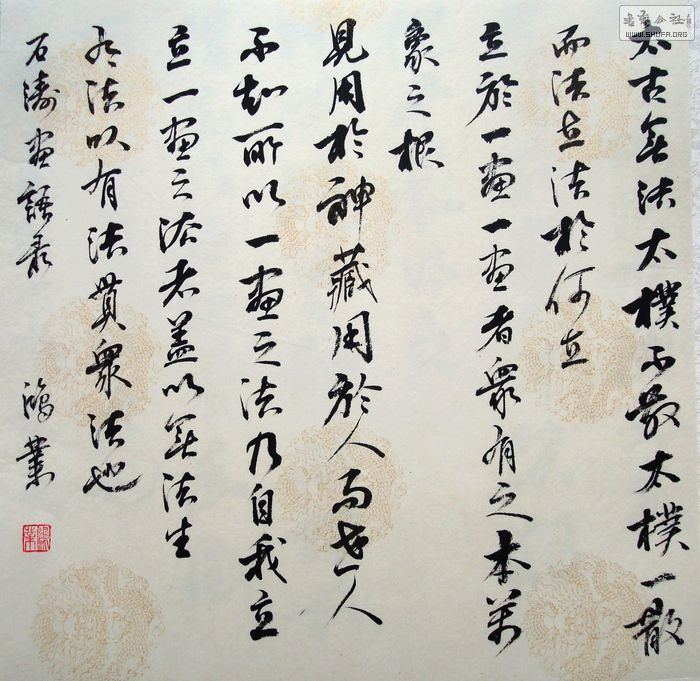 太古無法太樸不散太樸一散
而法立法於何立
立於一畫一畫者衆有之本萬
象之根
見用於神藏用於人而世人
不知所以一畫之法乃自我立
立一畫之法者蓋以無法生
有法以有法貫衆法也
石濤畫語录
鴻業
書法公社
WWW.SHUFA.ORG